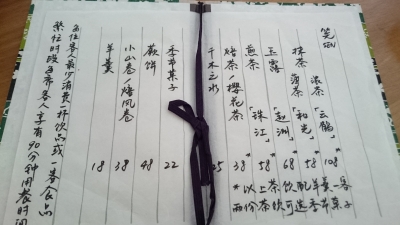 浓茶「云鹤」108*
抹茶 薄茶「和光」58*
玉露「赵州」68*
煎茶「珠江」58*
焙茶/樱花茶 38*
千木之水 25
*以上茶饮配羊羹一客
两份茶饮可选季节菓子
季节菓子 22
蕨饼 48
小山卷/焙风卷 38
羊羹 18
每位客人最少消费一杯饮品或一客食品
繁忙时段每席客人享有90分钟用餐时间